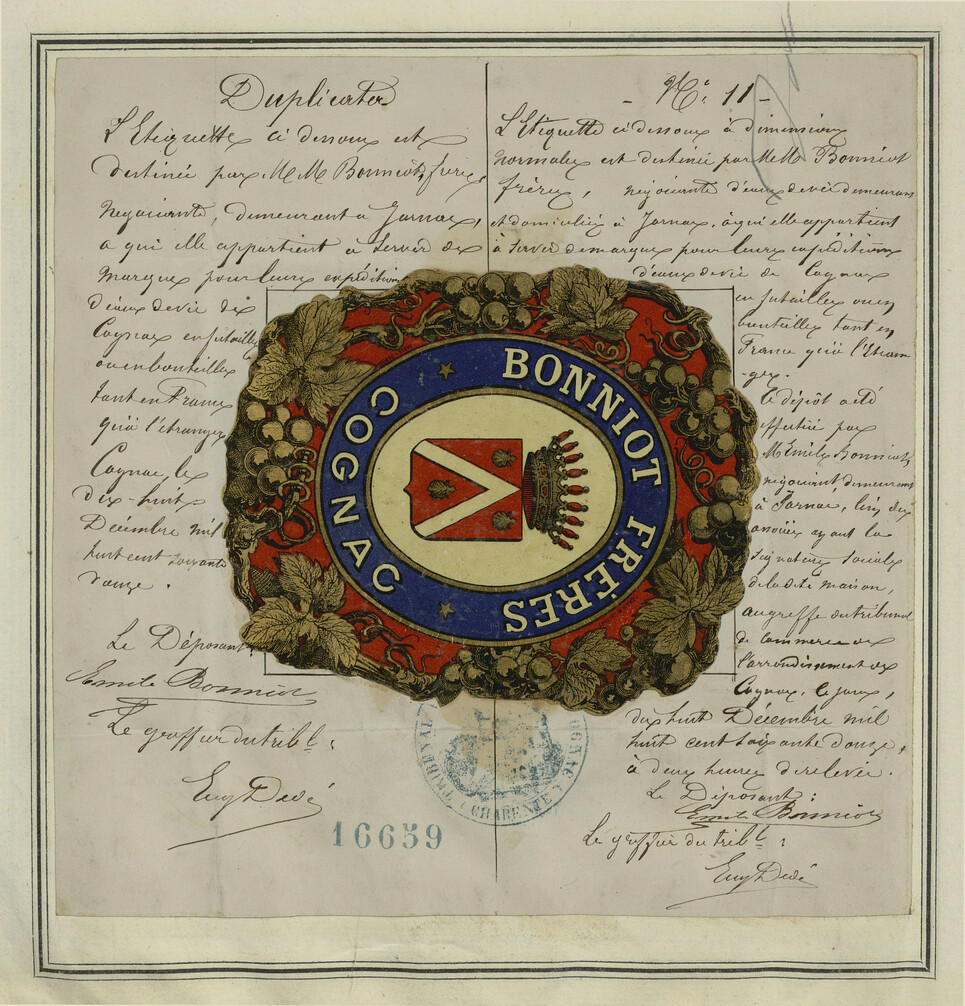 Duplicata
L'Etiquette ci dessous est
destinée par M M Bonniot, frères,
Négociants, demeurant à Jarnac,
a qui elle appartient à servir de
marque pour leurs expéditions
d'eaux de vie de
Cognac en futailles
ou en bouteilles
tant en France
qu'à l'étranger
Cognac le
dix-huit
Décembre mil
huit cent soixante
douze.
Le Déposant:
Emile Bonniot
Le greffier du tribl:
Eug Dedé
- No. 11 -
L'Etiquette ci dessous à dimensions
normales est destinée par M M Bonniot
frères, négociants d'eaux de vie demeurant
et domiciliés à Jarnac, à qui elle appartient
à servir de marque pour leurs expéditions
d'eaux de vie de Cognac
en futailles ou en
bouteilles tant en
France qu'à l'étran
-ger.
Ce dépôt a été
effectué par
M Emile Bonniot,
négociant, demeurant
à Jarnac, l'un des
associés ayant la
signature sociale
de la dite maison,
au greffe du tribunal
de commerce de
l'arrondissement de
Cognac, le jour,
dix huit Décembre mil
huit cent soixante douze,
à deux heures de relevée.
Le Déposant:
Emile Bonniot
Le greffier du tribl:
Eug Dedé
BONNIOT FRÈRES
COGNAC
TRIBUNAL COGNAC
(CHARENTE)
16659